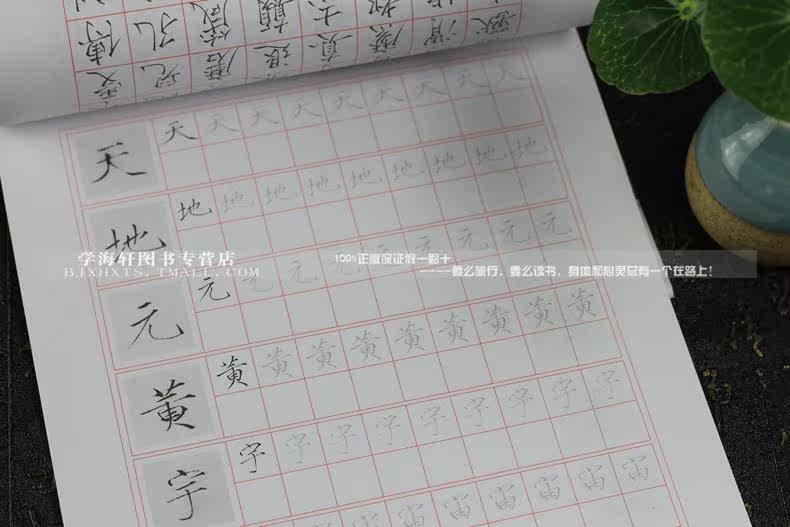 天 天 天 天 天 天 天 天 天 天
地 地 地 地 地 地 地 地 地 地
学海轩图书专营店
BJXHXTS.TMALL.COM
100%正版保证假一赔十
----要么旅行，要么读书，身体和心灵总有一个在路上！
元 元 元 元 元 元 元 元
黄 黄 黄 黄 黄 黄 黄 黄 黄 黄
宇 宇 宇 宇 宇 宇 宇 宇 宇 宇
宙 宙 宙 宙 宙 宙